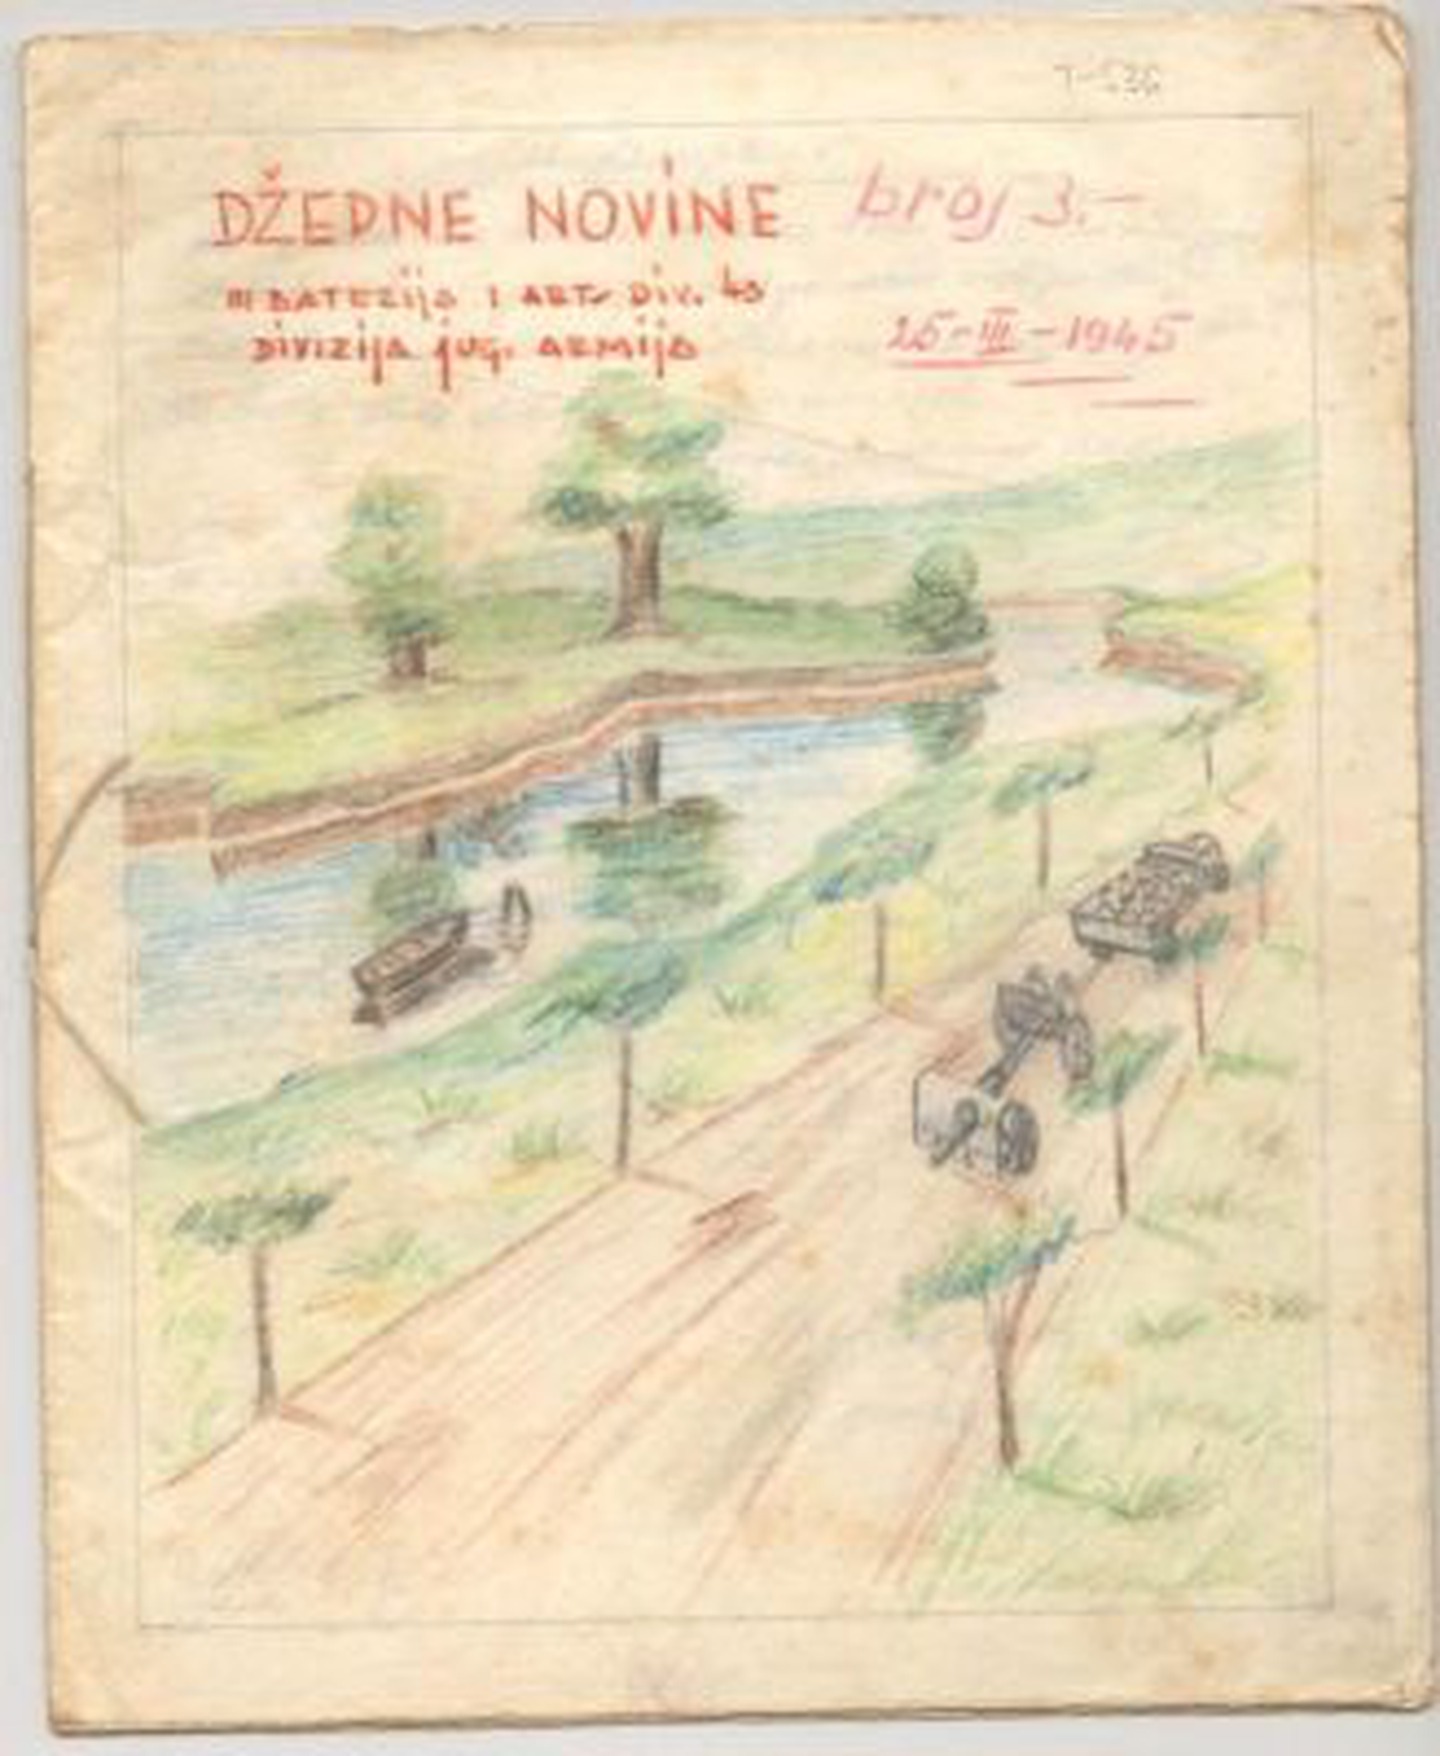 T-536
DŽEPNE NOVINE broj 3.-
III BATERIJA I ART. DIV. 43
DIVIZIJA jug. ARMIJA
25-III-1945